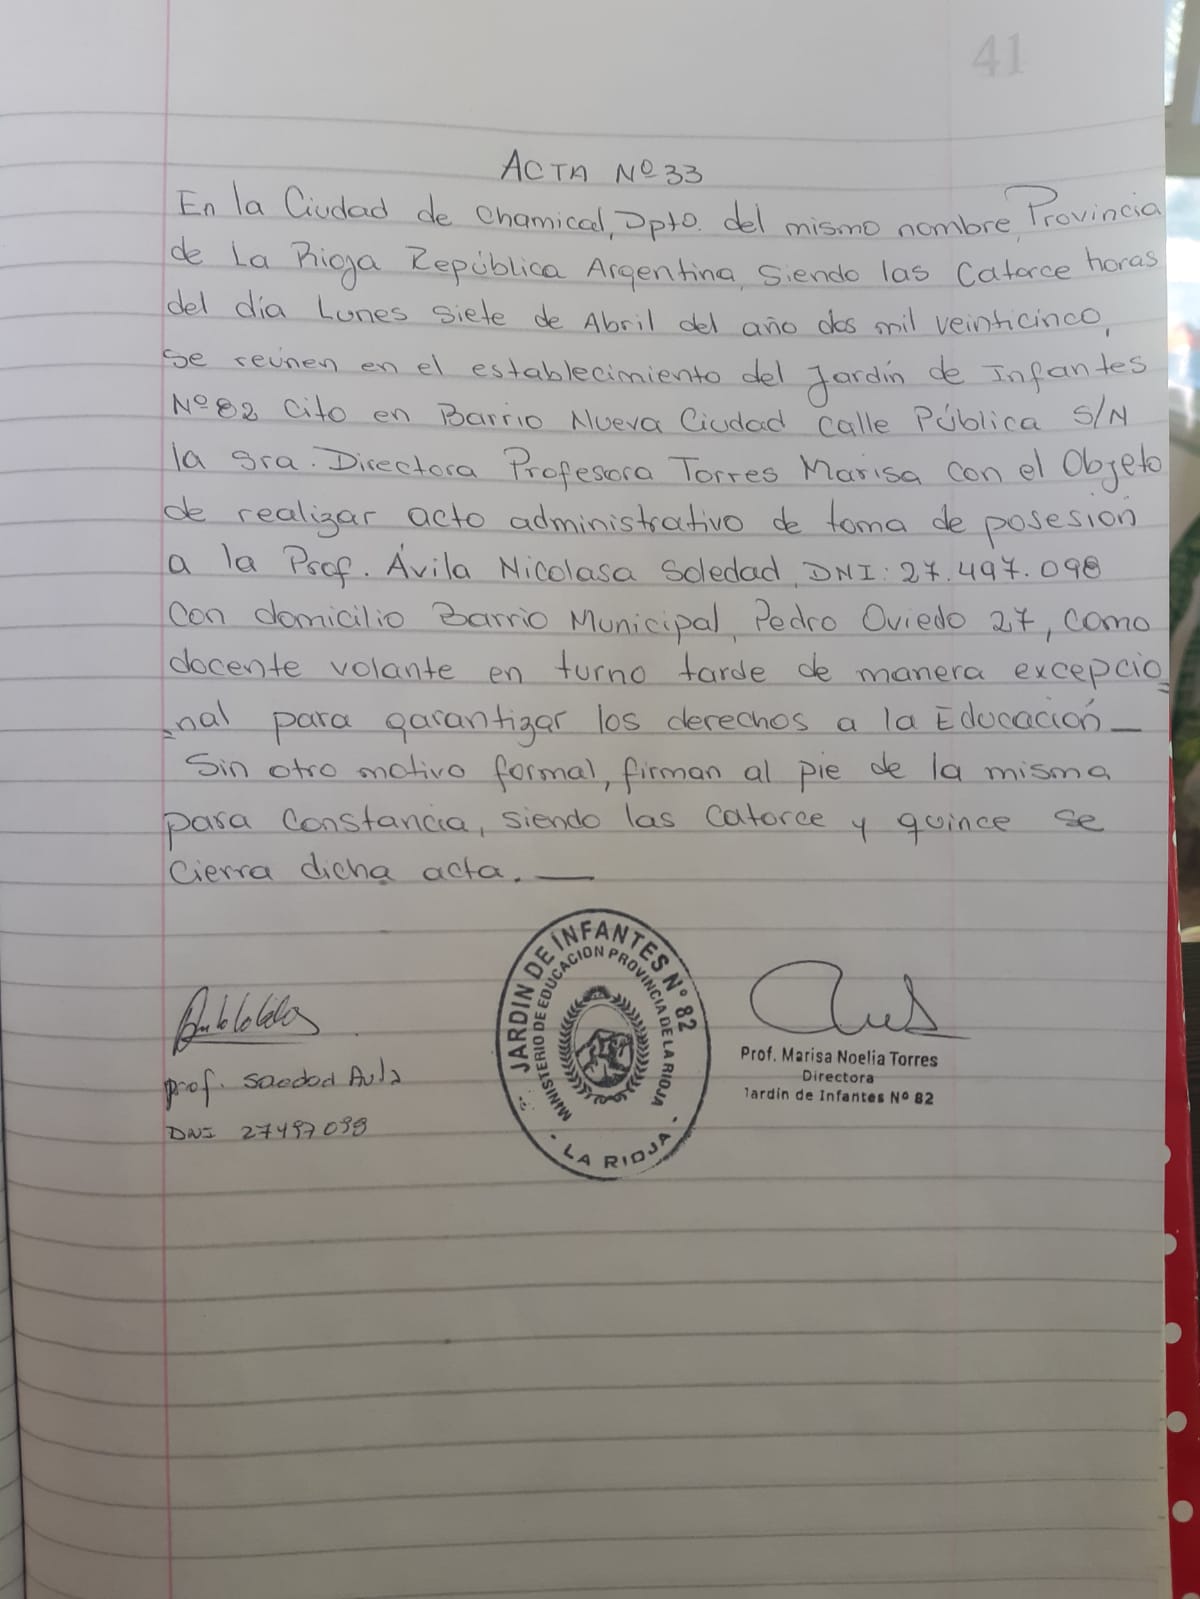 41
ACTA Nº 33
En la Ciudad de Chamical, Dpto. del mismo nombre, Provincia
de La Rioja República Argentina, Siendo las Catorce horas
del día Lunes Siete de Abril del año dos mil veinticinco,
Se reúnen en el establecimiento del Jardín de Infantes
Nº 82 Cito en Barrio Nueva Ciudad Calle Pública S/N
la Sra. Directora Profesora Torres Marisa con el Objeto
de realizar acto administrativo de toma de posesión
a la Prof. Ávila Nicolasa Soledad, DNI: 27.497.098
Con domicilio Barrio Municipal, Pedro Oviedo 27, como
docente volante en turno tarde de manera excepcio=
=nal para garantizar los derechos a la Educación_
Sin otro motivo formal, firman al pie de la misma
para Constancia, siendo las Catorce y quince se
Cierra dicha acta. —
JARDIN DE INFANTES Nº 82
MINISTERIO DE EDUCACION PROVINCIA DE LA RIOJA
· LA RIOJA ·
Prof. Marisa Noelia Torres
Directora
Jardin de Infantes Nº 82
prof. Avila
DNI 27497098